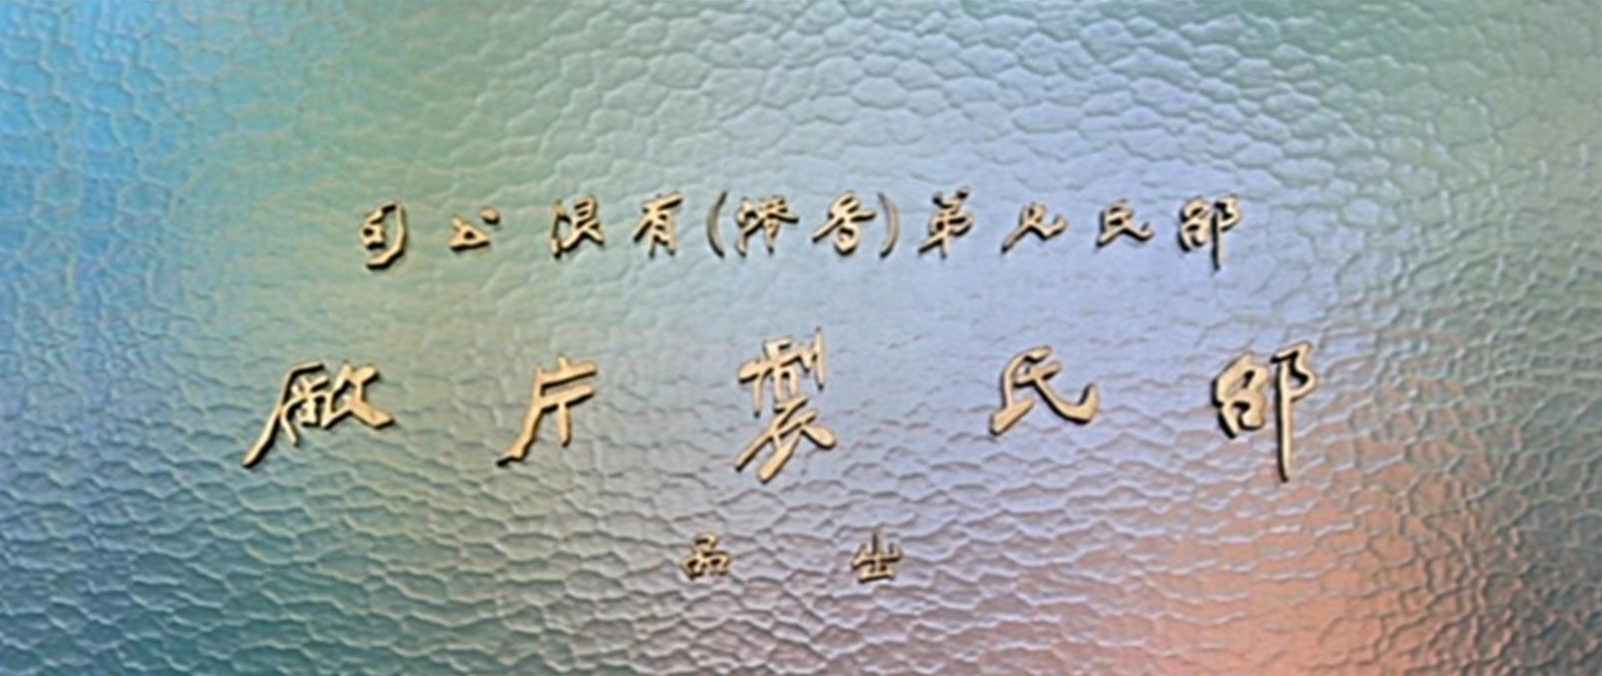 邵氏兄弟(香港)有限公司
邵氏製片厰
出品